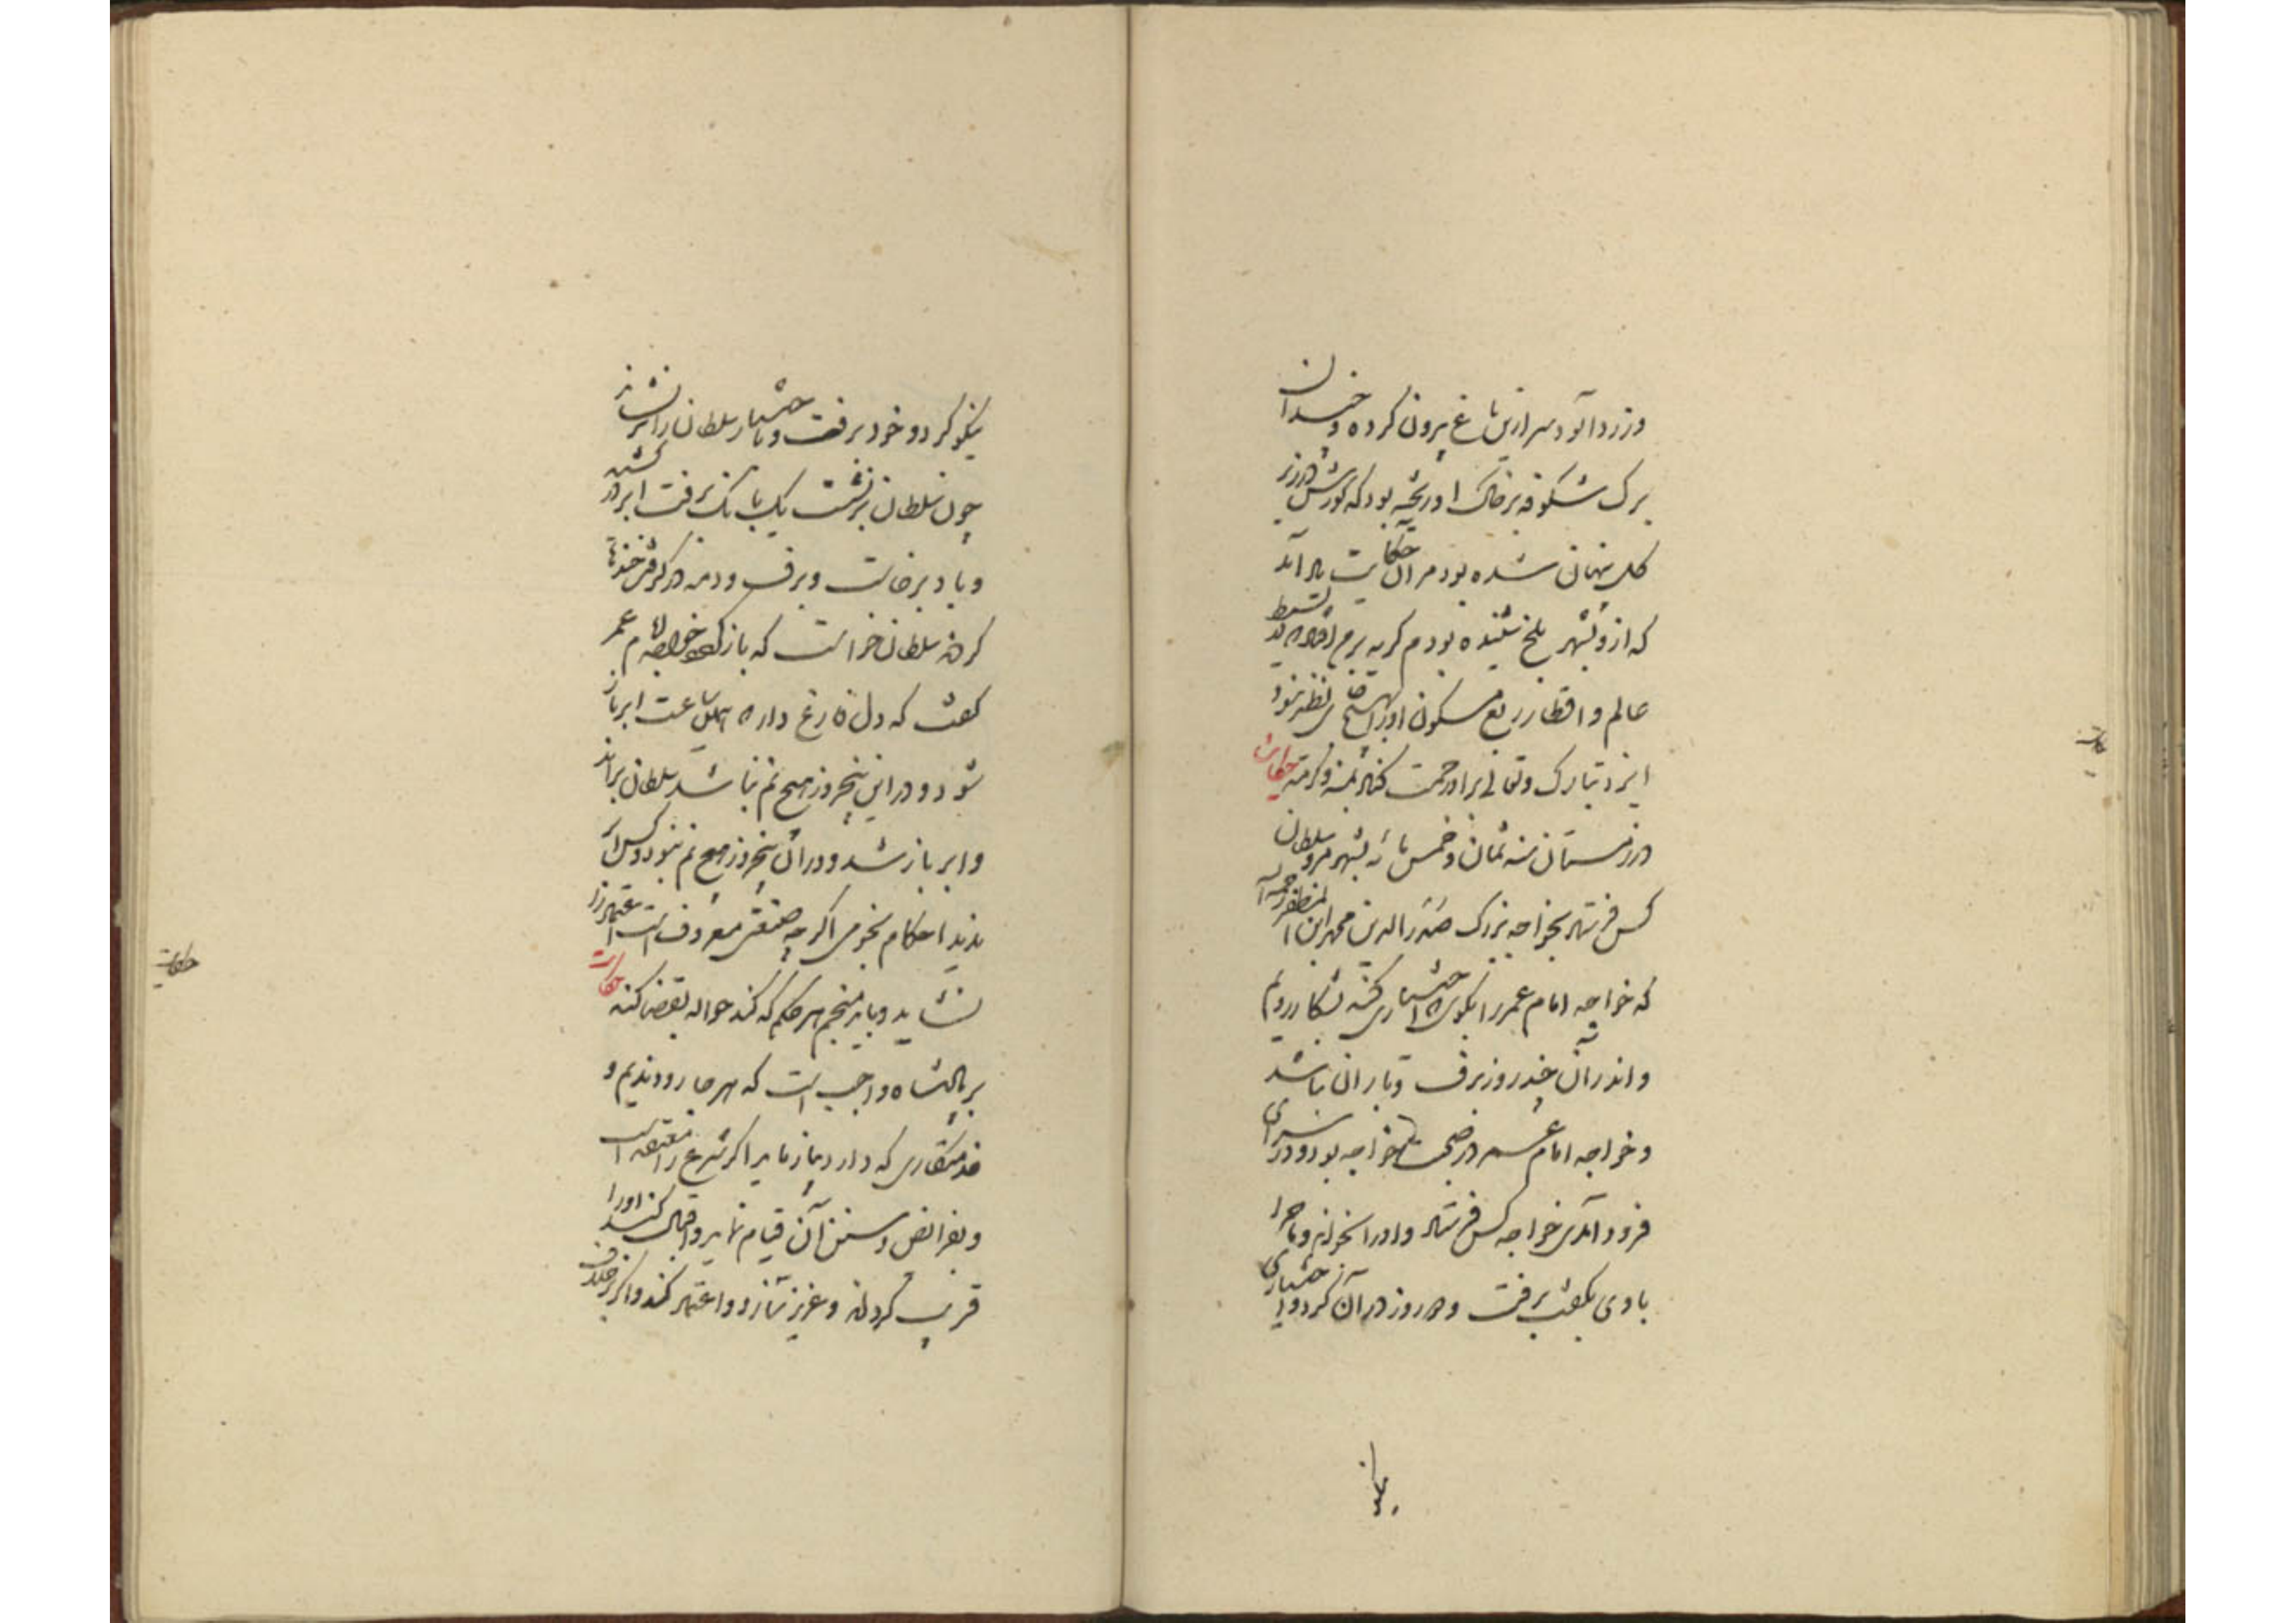 وزردآلود سر ازین باغ بیرون کرده و چندان
برک شکوفه بر خاک او ریخته بود که کورش در زیر
کل پنهان شده بود مرا آن حکایت یاد آمد
که ازو بشهر بلخ شنیده بودم کریه بر من افتاد که در بسیط
عالم و اقطار ربع مسکون او را بهیچ جای نظیر نبود
ایزد تبارک وتعالی بر او رحمت کناد بمنه وکرمه حکایت
در زمستان سنه ثمان وخمس مائه بشهر مرو سلطان
کس فرستاد بخواجه بزرک صدرالدین محمد ابن المظفر رحمه ا
که خواجه امام عمر را بکوی تا اختیاری کند که بشکار رویم
واندر آن چند روز برف و باران نباشد
وخواجه امام عمر در صحبت خواجه بود ودر سرای
فرود آمدی خواجه کس فرستاد واورا بخواند وماجرا
باوی بکفت برفت ودو روز در آن کرد واختیاری
نیکو
نیکو کرد و خود برفت وباختیار سلطان را برنشاند
چون سلطان برنشست یک بانک برفت ابر در کشید
وباد برخاست وبرف ودمه در کرفت خندها
کردند سلطان خواست که باز کردد خواجه امام عمر
کفت که دل فارغ دار که همین ساعت ابر باز
شود ودر این پنجروز هیچ نم نباشد سلطان براند
وابر باز شد ودر آن پنجروز هیچ نم نبود وکس ابر
ندید احکام نجومی اکرچه صنعتی معروفست اعتماد را
نشاید وباید منجم هر حکم که کند حواله بقضا کند حکایت
بر پادشاه واجب است که هر جا رود ندیم و
خدمتکاری که دارد بیازماید اکر شرع را معتقد است
وبفرائض وسنن آن قیام نماید واقبال کند اورا
قریب کرداند وعزیز سازد واعتماد کند واکر بر خلاف
حکایت
حکایت